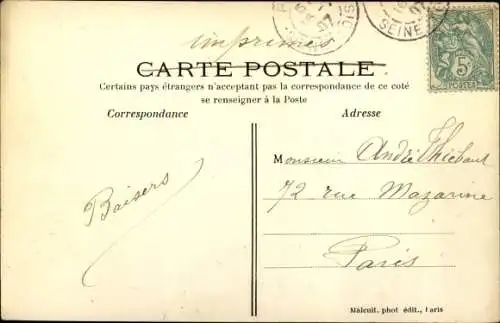 imprimé
CARTE POSTALE
Certains pays étrangers n'acceptant pas la correspondance de ce coté
se renseigner à la Poste
Correspondance
Adresse
Monsieur André Thiébaut
Baisers
72 rue Mazarine
Paris
Malcuit, phot édit., Paris
SEINE
07
5c
POSTES